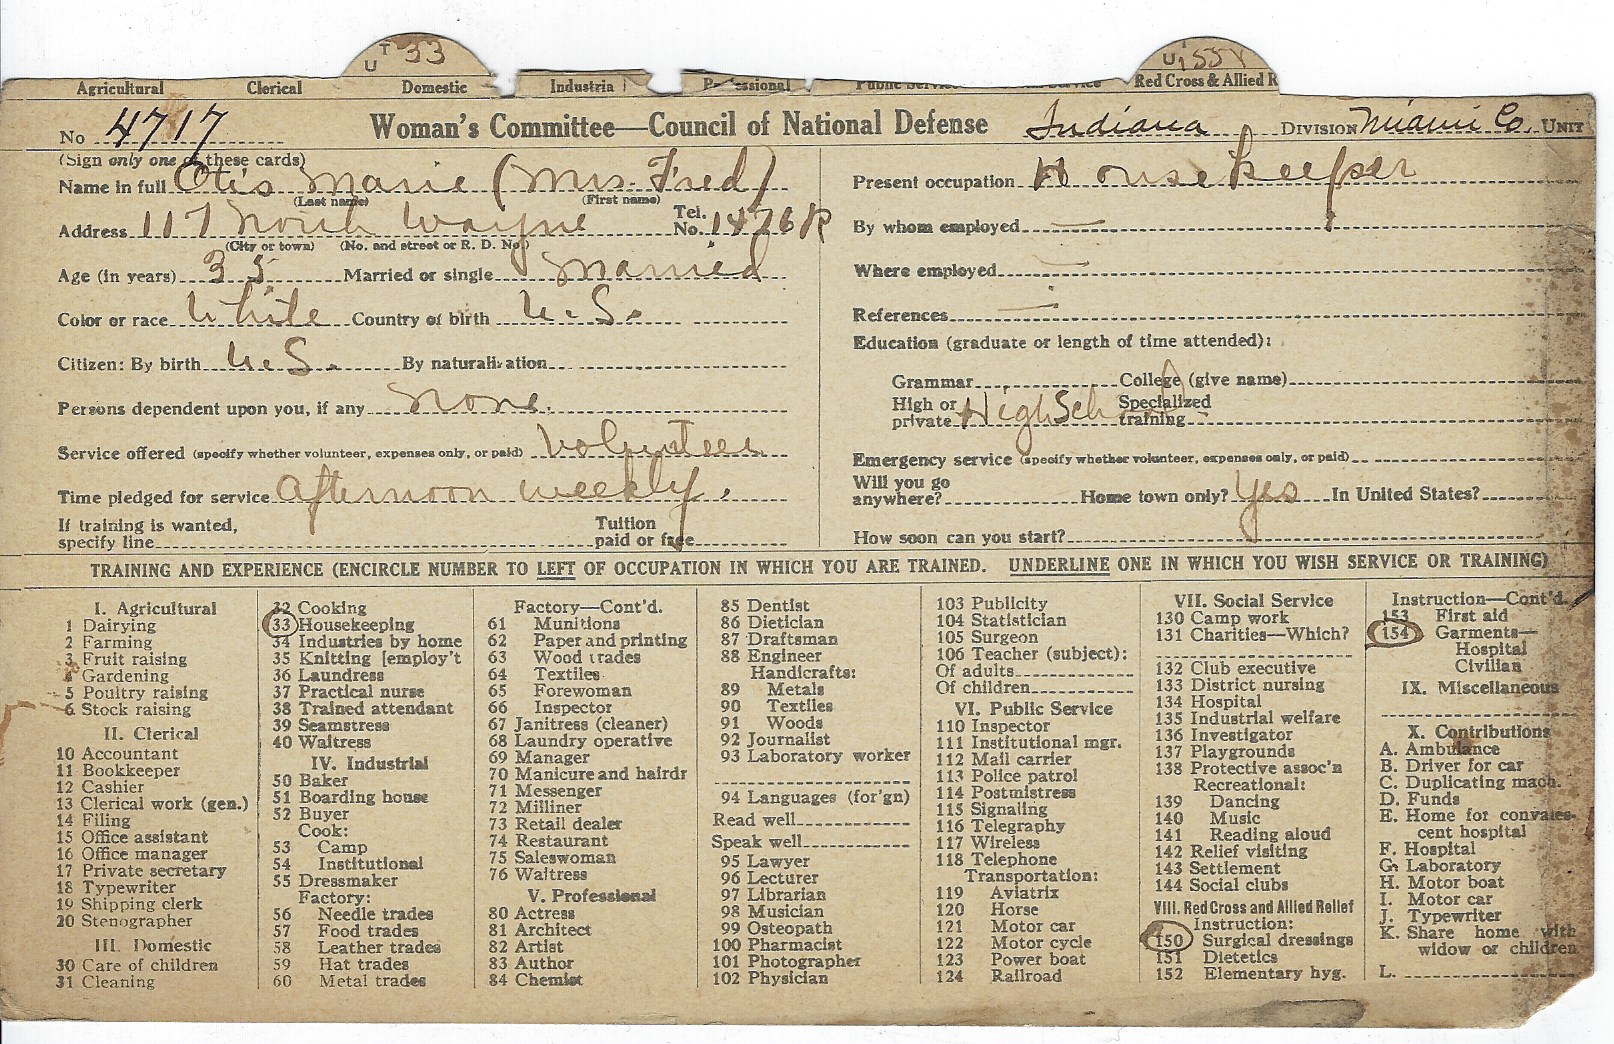 T U 33
U 155
Agricultural Clerical Domestic Industrial Professional Public Service Red Cross & Allied R
No 4717 Woman's Committee—Council of National Defense Indiana DIVISION Miami Co. UNIT
(Sign only one of these cards)
Name in full Otis Marie (Mrs. Fred)
(Last name) (First name)
Address 117 North Wayne Tel. No. 1476R
(City or town) (No. and street or R. D. No.)
Age (in years) 35 Married or single Married
Color or race White Country of birth U.S.
Citizen: By birth U.S. By naturalization
Persons dependent upon you, if any None.
Service offered (specify whether volunteer, expenses only, or paid) Volunteer
Time pledged for service afternoon weekly.
If training is wanted,
specify line Tuition paid or free
Present occupation Housekeeper
By whom employed —
Where employed —
References —
Education (graduate or length of time attended):
Grammar College (give name)
High or private High School Specialized training
Emergency service (specify whether volunteer, expenses only, or paid)
Will you go anywhere? Home town only? Yes In United States?
How soon can you start?
TRAINING AND EXPERIENCE (ENCIRCLE NUMBER TO LEFT OF OCCUPATION IN WHICH YOU ARE TRAINED. UNDERLINE ONE IN WHICH YOU WISH SERVICE OR TRAINING)
I. Agricultural
1 Dairying
2 Farming
3 Fruit raising
4 Gardening
5 Poultry raising
6 Stock raising
II. Clerical
10 Accountant
11 Bookkeeper
12 Cashier
13 Clerical work (gen.)
14 Filing
15 Office assistant
16 Office manager
17 Private secretary
18 Typewriter
19 Shipping clerk
20 Stenographer
III. Domestic
30 Care of children
31 Cleaning
32 Cooking
33 Housekeeping
34 Industries by home
35 Knitting [employ't
36 Laundress
37 Practical nurse
38 Trained attendant
39 Seamstress
40 Waitress
IV. Industrial
50 Baker
51 Boarding house
52 Buyer
Cook:
53 Camp
54 Institutional
55 Dressmaker
Factory:
56 Needle trades
57 Food trades
58 Leather trades
59 Hat trades
60 Metal trades
Factory—Cont'd.
61 Munitions
62 Paper and printing
63 Wood trades
64 Textiles
65 Forewoman
66 Inspector
67 Janitress (cleaner)
68 Laundry operative
69 Manager
70 Manicure and hairdr
71 Messenger
72 Milliner
73 Retail dealer
74 Restaurant
75 Saleswoman
76 Waitress
V. Professional
80 Actress
81 Architect
82 Artist
83 Author
84 Chemist
85 Dentist
86 Dietician
87 Draftsman
88 Engineer
Handicrafts:
89 Metals
90 Textiles
91 Woods
92 Journalist
93 Laboratory worker
94 Languages (for'gn)
Read well
Speak well
95 Lawyer
96 Lecturer
97 Librarian
98 Musician
99 Osteopath
100 Pharmacist
101 Photographer
102 Physician
103 Publicity
104 Statistician
105 Surgeon
106 Teacher (subject):
Of adults
Of children
VI. Public Service
110 Inspector
111 Institutional mgr.
112 Mail carrier
113 Police patrol
114 Postmistress
115 Signaling
116 Telegraphy
117 Wireless
118 Telephone
Transportation:
119 Aviatrix
120 Horse
121 Motor car
122 Motor cycle
123 Power boat
124 Railroad
VII. Social Service
130 Camp work
131 Charities—Which?
132 Club executive
133 District nursing
134 Hospital
135 Industrial welfare
136 Investigator
137 Playgrounds
138 Protective assoc'n
Recreational:
139 Dancing
140 Music
141 Reading aloud
142 Relief visiting
143 Settlement
144 Social clubs
VIII. Red Cross and Allied Relief
Instruction:
150 Surgical dressings
151 Dietetics
152 Elementary hyg.
Instruction—Cont'd.
153 First aid
154 Garments—
Hospital
Civilian
IX. Miscellaneous
X. Contributions
A. Ambulance
B. Driver for car
C. Duplicating mach.
D. Funds
E. Home for convales-
cent hospital
F. Hospital
G. Laboratory
H. Motor boat
I. Motor car
J. Typewriter
K. Share home with
widow or children
L.